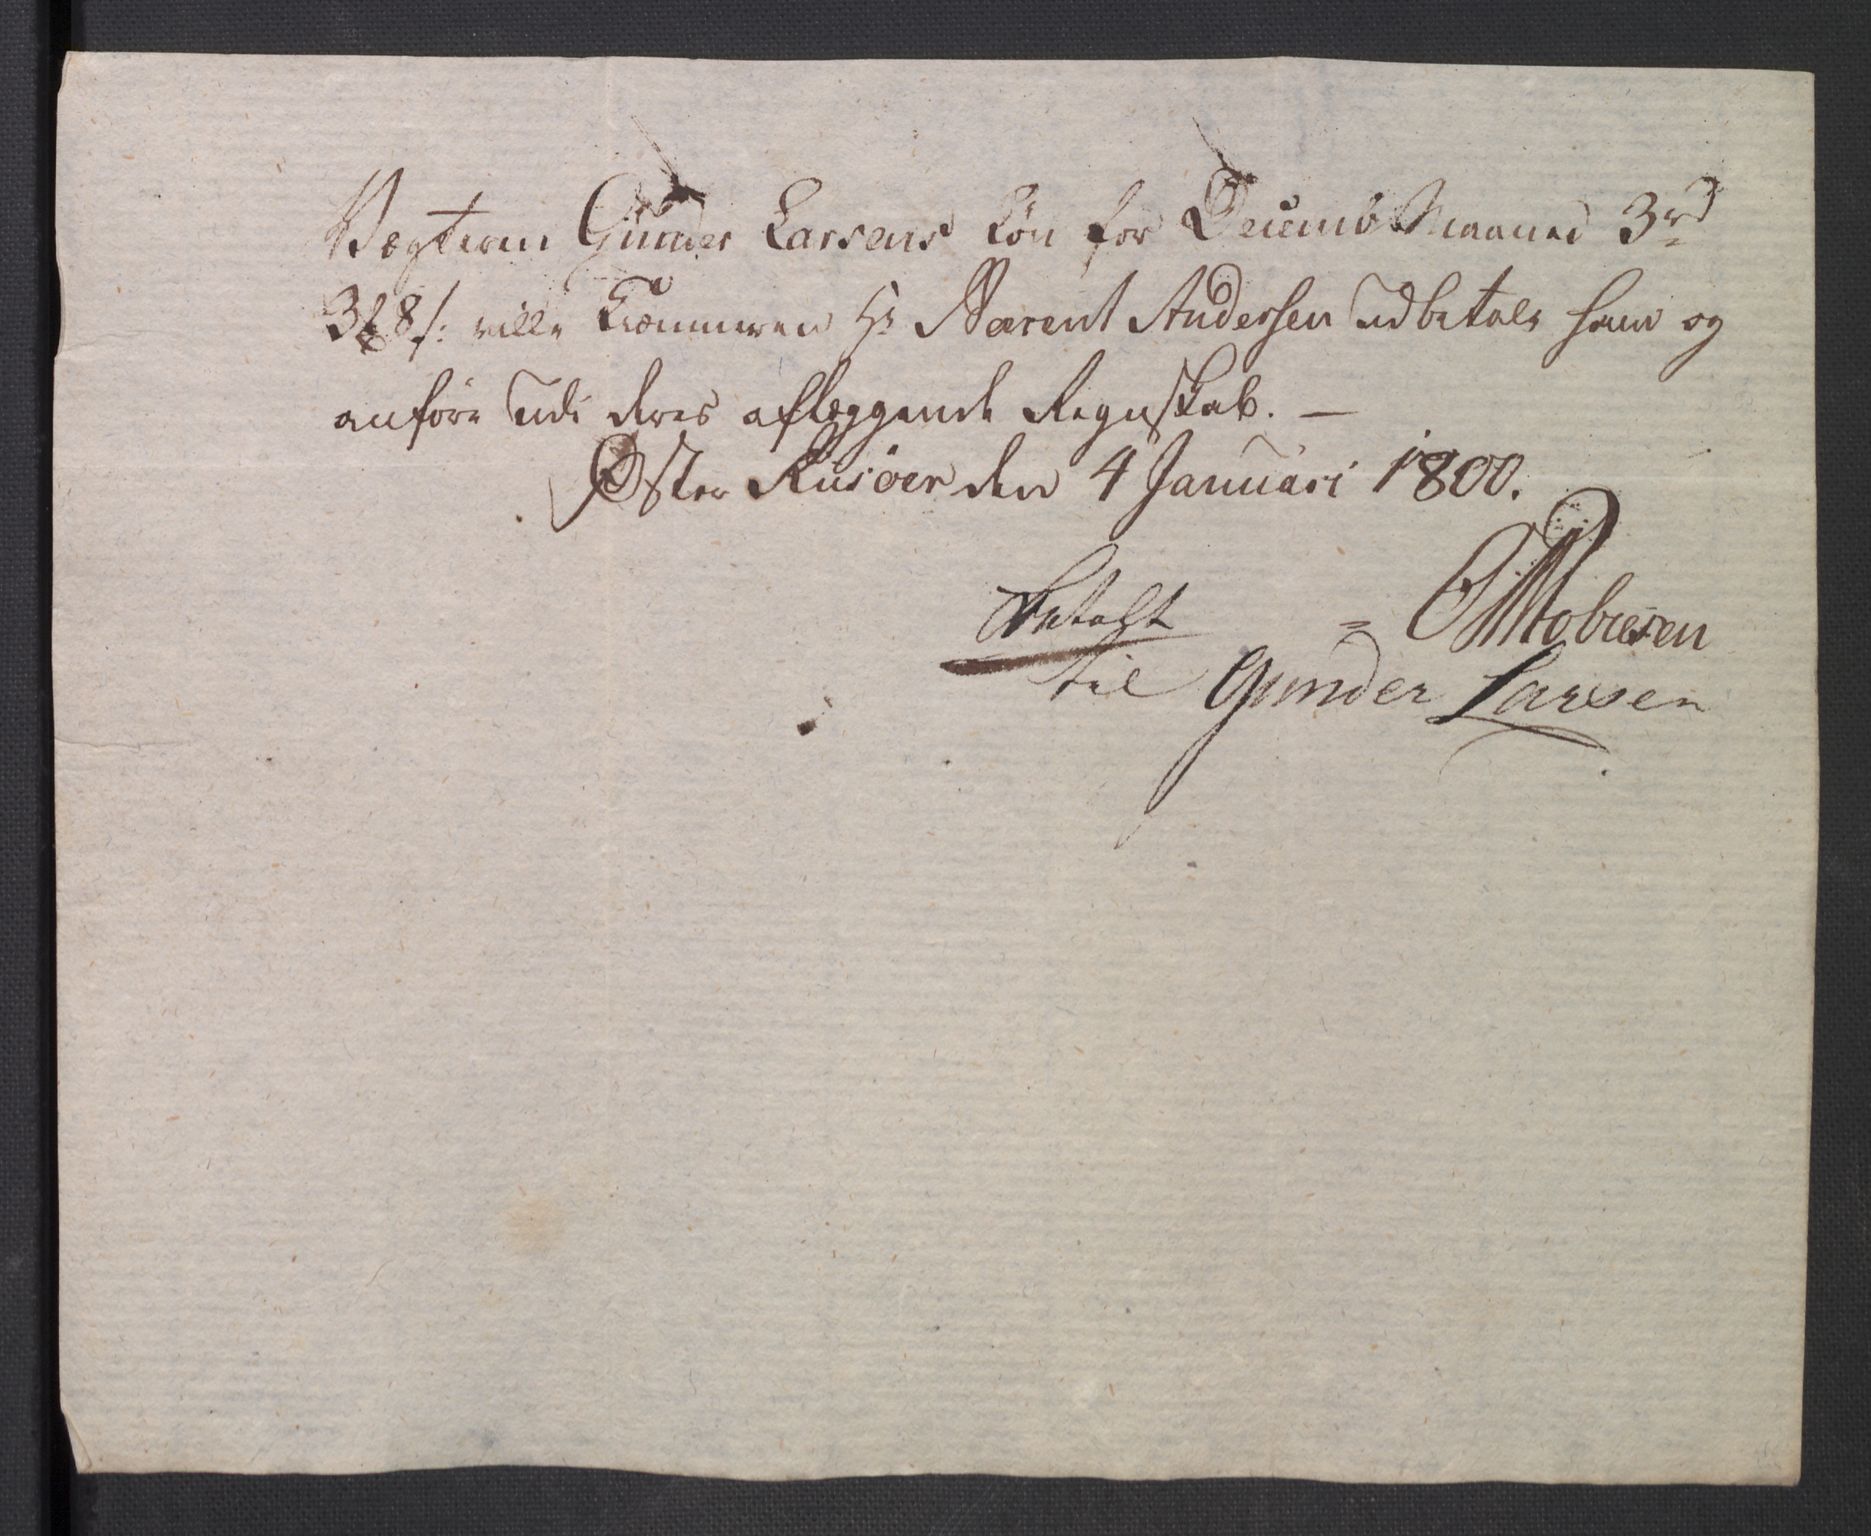 Vægteren Gunder Larsens Løn for Decemb: Maaned 3 rd
3 ß: ville Kiæmneren Hr Barent Andersen udbetale ham og
anföre udi deres aflæggende Regnskab. —
Øster Riisöer den 4 Januari 1800.
Betalt = Tobiesen
til Gunder Larsen